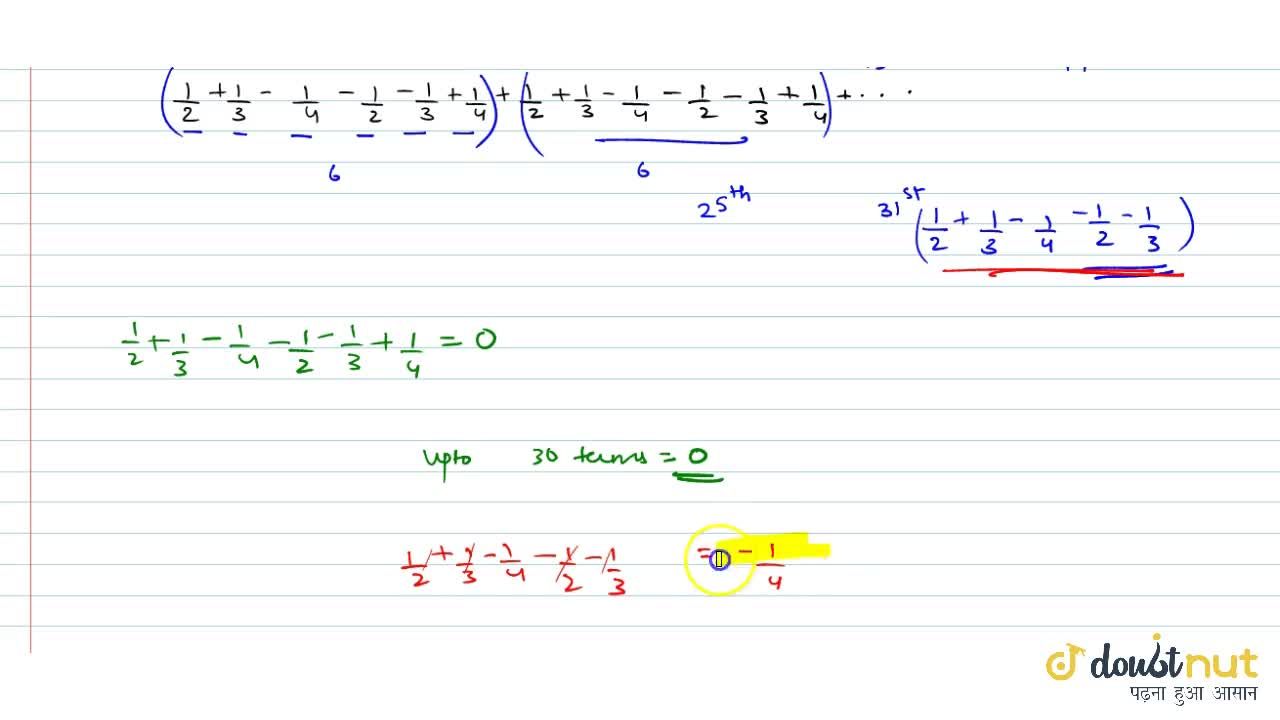 (1/2 + 1/3 - 1/4 - 1/2 - 1/3 + 1/4) + (1/2 + 1/3 - 1/4 - 1/2 - 1/3 + 1/4) + ...
6 6
25th 31st (1/2 + 1/3 - 1/4 - 1/2 - 1/3)
1/2 + 1/3 - 1/4 - 1/2 - 1/3 + 1/4 = 0
upto 30 terms = 0
1/2 + 1/3 - 1/4 - 1/2 - 1/3 = - 1/4
doubtnut
पढ़ना हुआ आसान